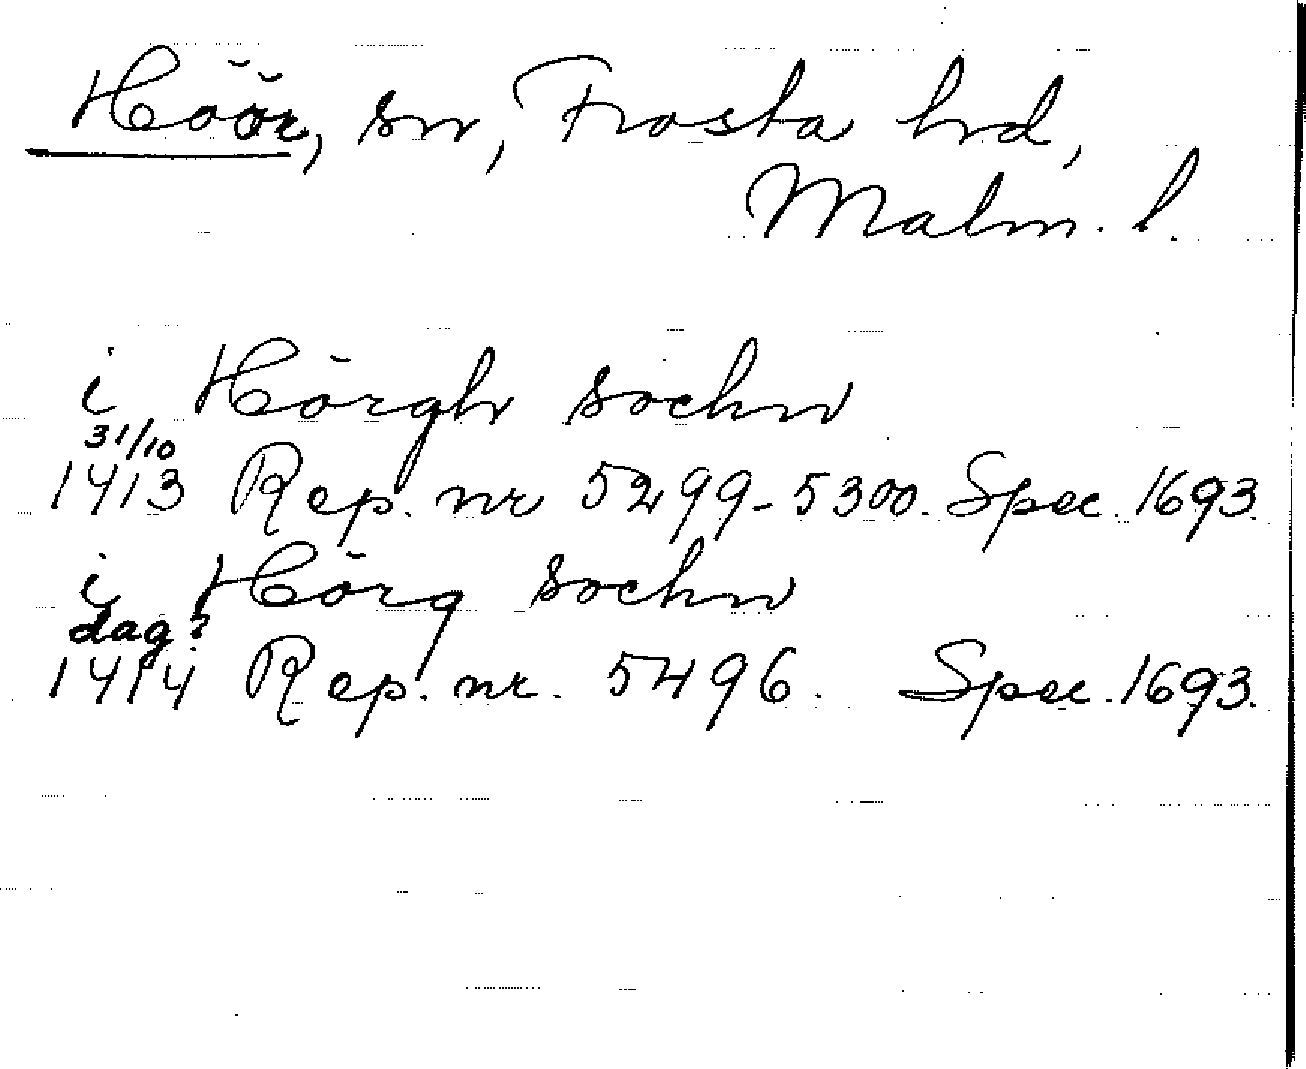 Höör, sn, Frosta hd,
Malm. l.
i Hörgh sochn
31/10
1413 Rep. nr 5299-5300. Spec. 1693.
i Hörg sochn
dag?
1414 Rep. nr. 5496. Spec. 1693.